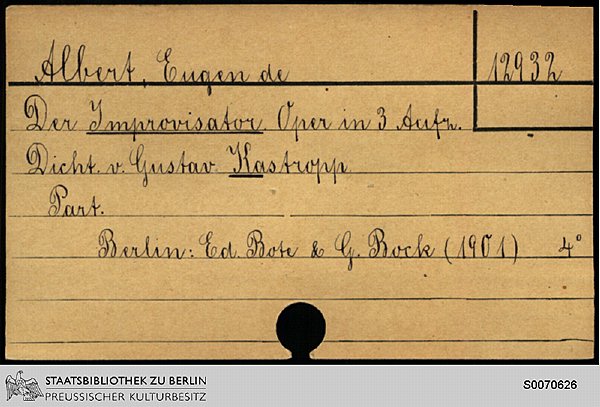 Albert, Eugen de
12932
Der Improvisator. Oper in 3 Aufz.
Dicht. v. Gustav Kastropp
Part.
Berlin: Ed. Bote & G. Bock (1901) 4°
STAATSBIBLIOTHEK ZU BERLIN
PREUSSISCHER KULTURBESITZ
S0070626